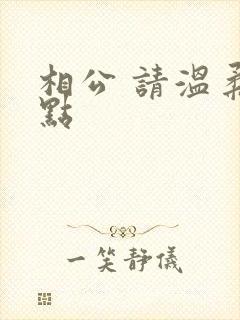 相公 請溫柔
點
一笑靜儀